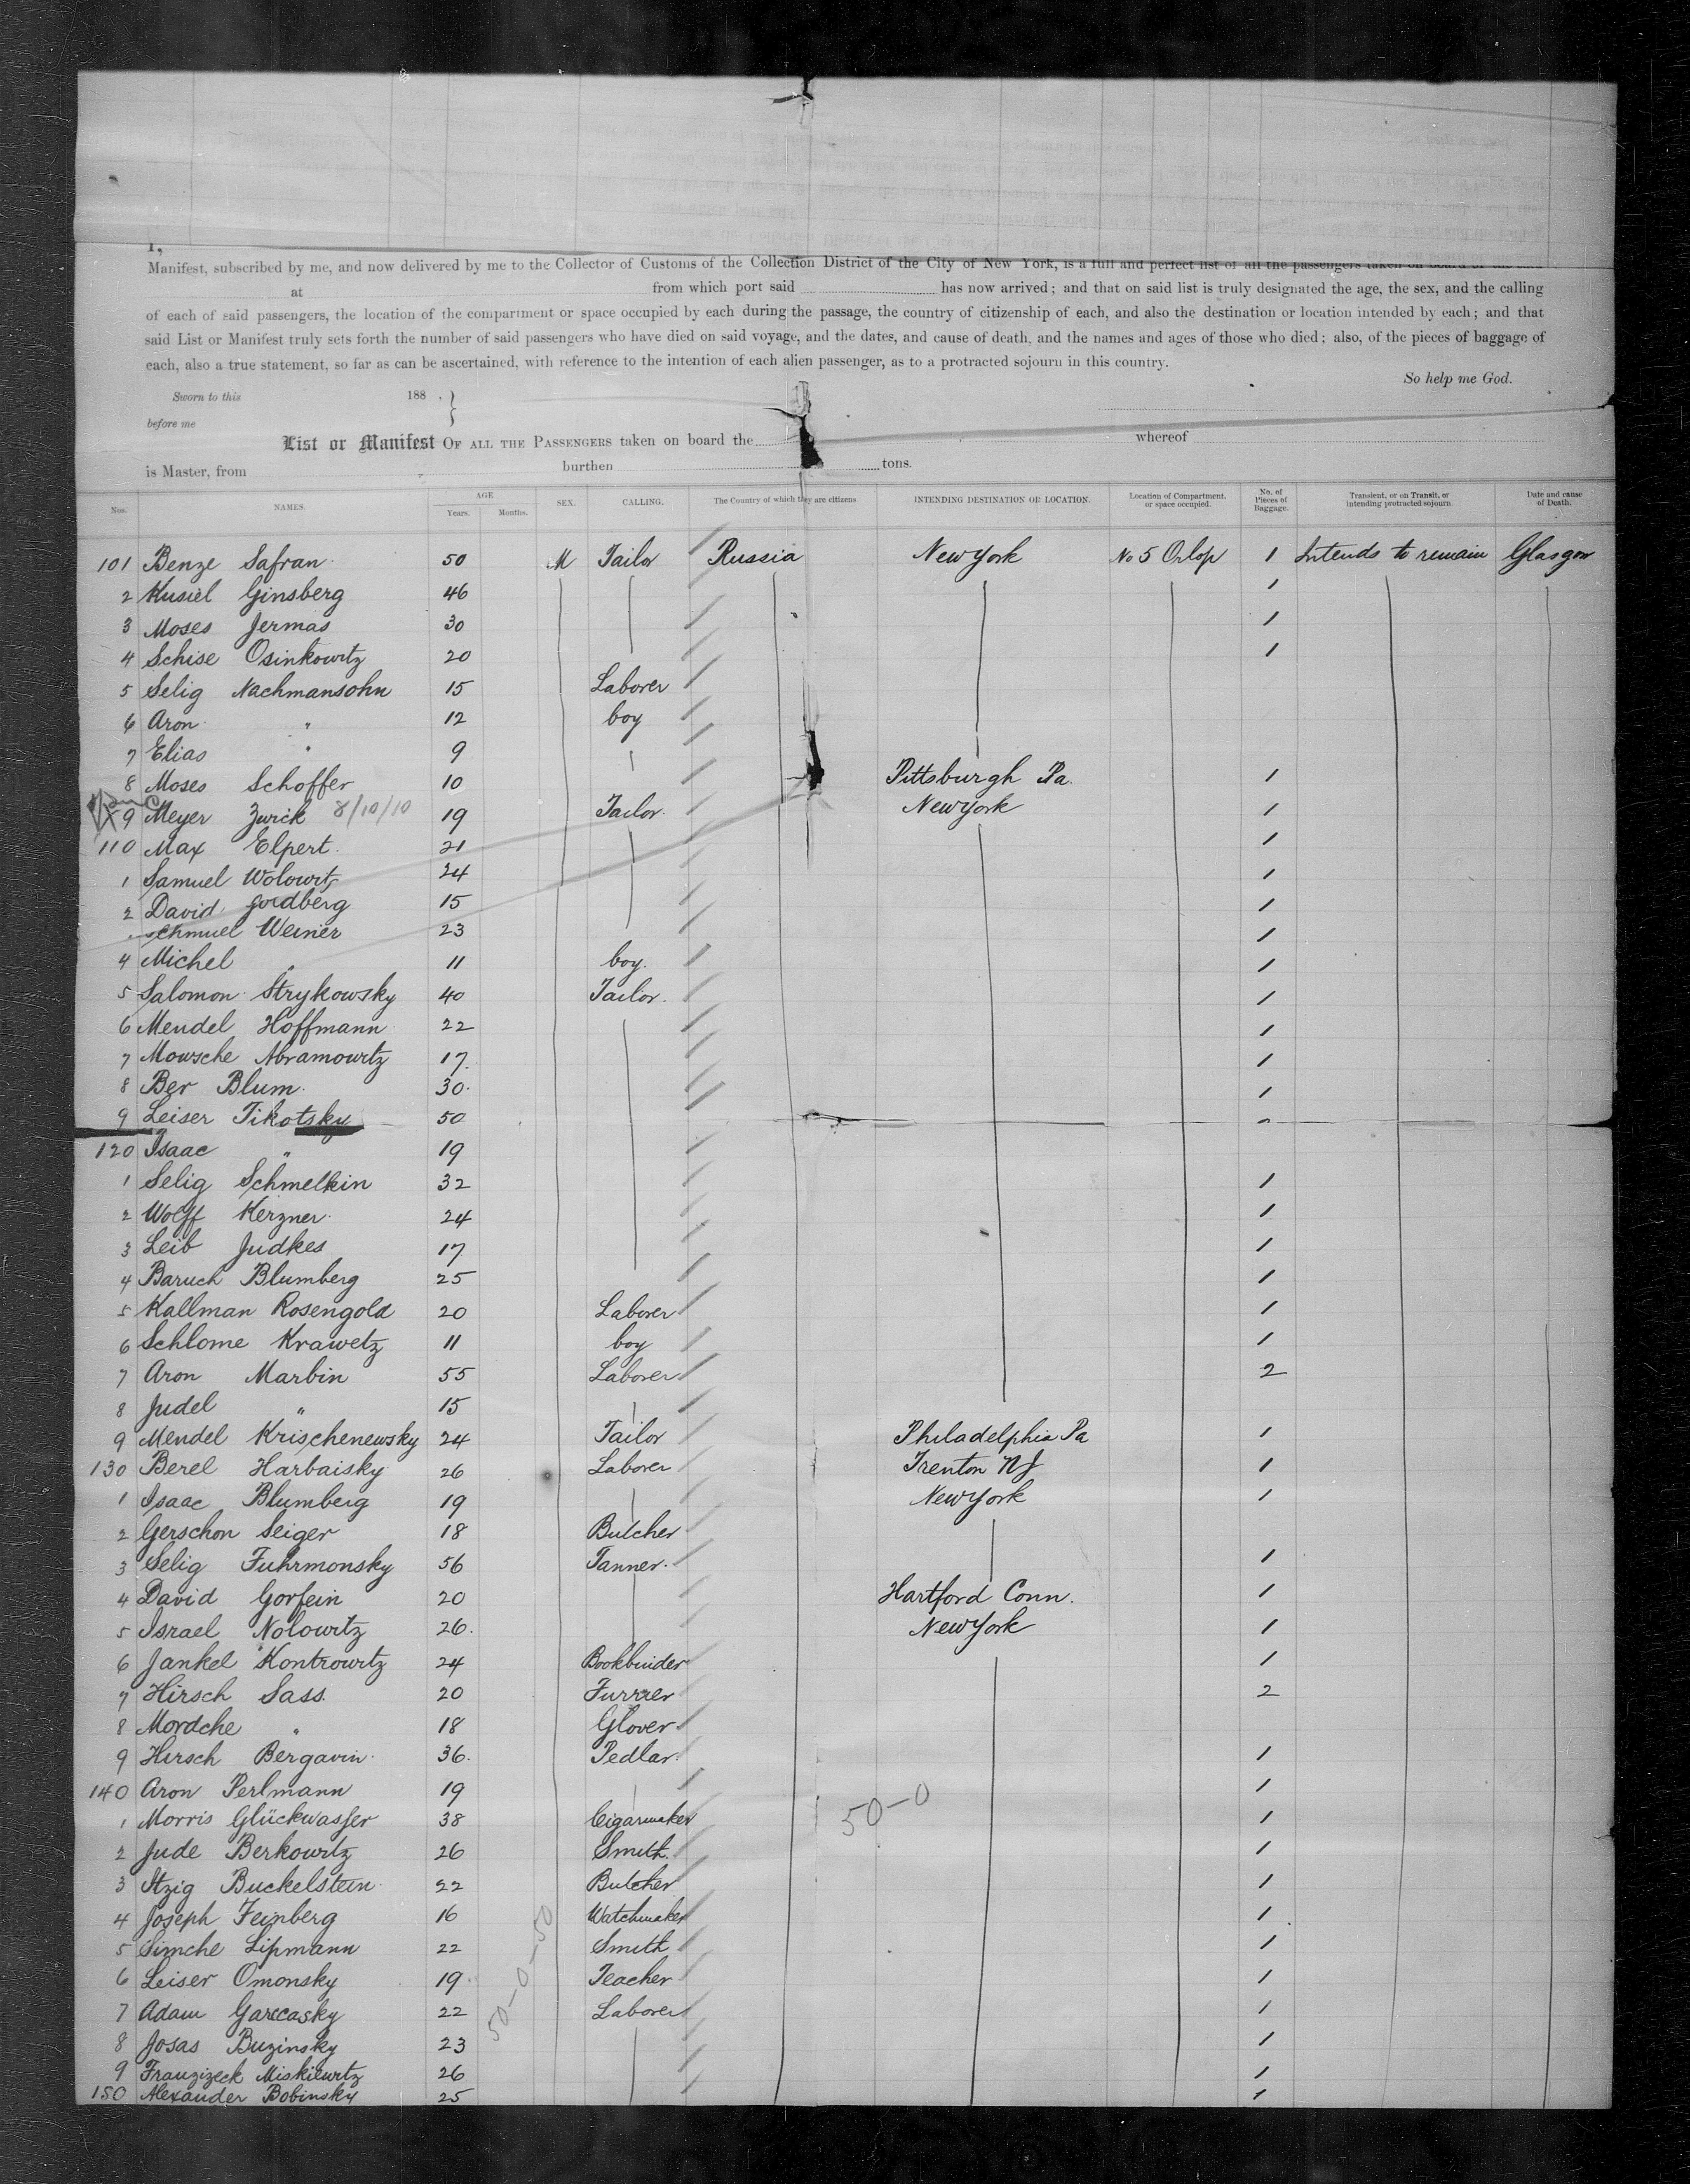 I,
Manifest, subscribed by me, and now delivered by me to the Collector of Customs of the Collection District of the City of New York, is a full and perfect list of all the passengers taken on board of the said
at from which port said has now arrived; and that on said list is truly designated the age, the sex, and the calling
of each of said passengers, the location of the compartment or space occupied by each during the passage, the country of citizenship of each, and also the destination or location intended by each; and that
said List or Manifest truly sets forth the number of said passengers who have died on said voyage, and the dates, and cause of death, and the names and ages of those who died; also, of the pieces of baggage of
each, also a true statement, so far as can be ascertained, with reference to the intention of each alien passenger, as to a protracted sojourn in this country.
So help me God.
Sworn to this 188 .
before me
List or Manifest OF ALL THE PASSENGERS taken on board the whereof
is Master, from burthen tons.
Nos. NAMES. AGE Years. Months. SEX. CALLING. The Country of which they are citizens INTENDING DESTINATION OR LOCATION. Location of Compartment, or space occupied. No. of Pieces of Baggage. Transient, or on Transit, or intending protracted sojourn. Date and cause of Death.
101 Benze Safran 50 M Tailor Russia New York No 5 Orlop 1 Intends to remain Glasgow
2 Kusiel Ginsberg 46 1
3 Moses Jermas 30 1
4 Schise Osinkowitz 20 1
5 Selig Nachmansohn 15 Laborer
6 Aron " 12 boy
7 Elias " 9
8 Moses Schoffer 10 Pittsburgh Pa. 1
9 Meyer Zwick 8/10/10 19 Tailor. New York 1
110 Max Elpert 21 1
1 Samuel Wolowitz 24 1
2 David Goldberg 15 1
Schmuel Weiner 23 1
4 Michel " 11 boy. 1
5 Salomon Strykowsky 40 Tailor. 1
6 Mendel Hoffmann 22 1
7 Mowsche Abramowitz 17. 1
8 Ber Blum 30. 1
9 Leiser Tikotsky 50
120 Isaac " 19
1 Selig Schmelkin 32 1
2 Wolff Kerzner 24 1
3 Leib Judkes 17 1
4 Baruch Blumberg 25 1
5 Kallman Rosengold 20 Laborer 1
6 Schlome Krawetz 11 boy 1
7 Aron Marbin 55 Laborer 2
8 Judel " 15
9 Mendel Krischenewsky 24 Tailor Philadelphia Pa 1
130 Berel Harbaisky 26 Laborer Trenton NJ 1
1 Isaac Blumberg 19 New York 1
2 Gerschon Seiger 18 Butcher
3 Selig Fuhrmonsky 56 Tanner. 1
4 David Gorfein 20 Hartford Conn. 1
5 Israel Nolowitz 26. New York 1
6 Jankel Kontrowitz 24 Bookbinder 1
7 Hirsch Sass 20 Furrier 2
8 Mordche " 18 Glover
9 Hirsch Bergavin 36. Pedlar. 1
140 Aron Perlmann 19 1
1 Morris Glückwasser 38 Cigarmaker 50-0 1
2 Jude Berkowitz 26 Smith. 1
3 Itzig Buckelstein 22 Butcher 1
4 Joseph Feinberg 16 Watchmaker 1
5 Simche Lipmann 22 Smith 1
6 Leiser Omonsky 19. 50-0-50 Teacher 1
7 Adam Garecasky 22 Laborer 1
8 Josas Buzinsky 23 1
9 Franzizeck Miskiewitz 26 1
150 Alexander Bobinsky 25 1